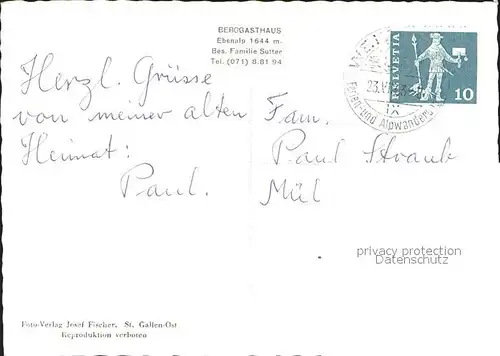 BERGGASTHAUS
Ebenalp 1644 m.
Bes. Familie Sutter
Tel. (071) 8.81 94
HELVETIA
10
23.VI
Ferien- und Alpwander
Herzl. Grüsse
von meiner alten
Heimat:
Paul.
Fam.
Paul Straub
Mül
privacy protection
Datenschutz
Foto-Verlag Josef Fischer. St. Gallen-Ost
Reproduktion verboten